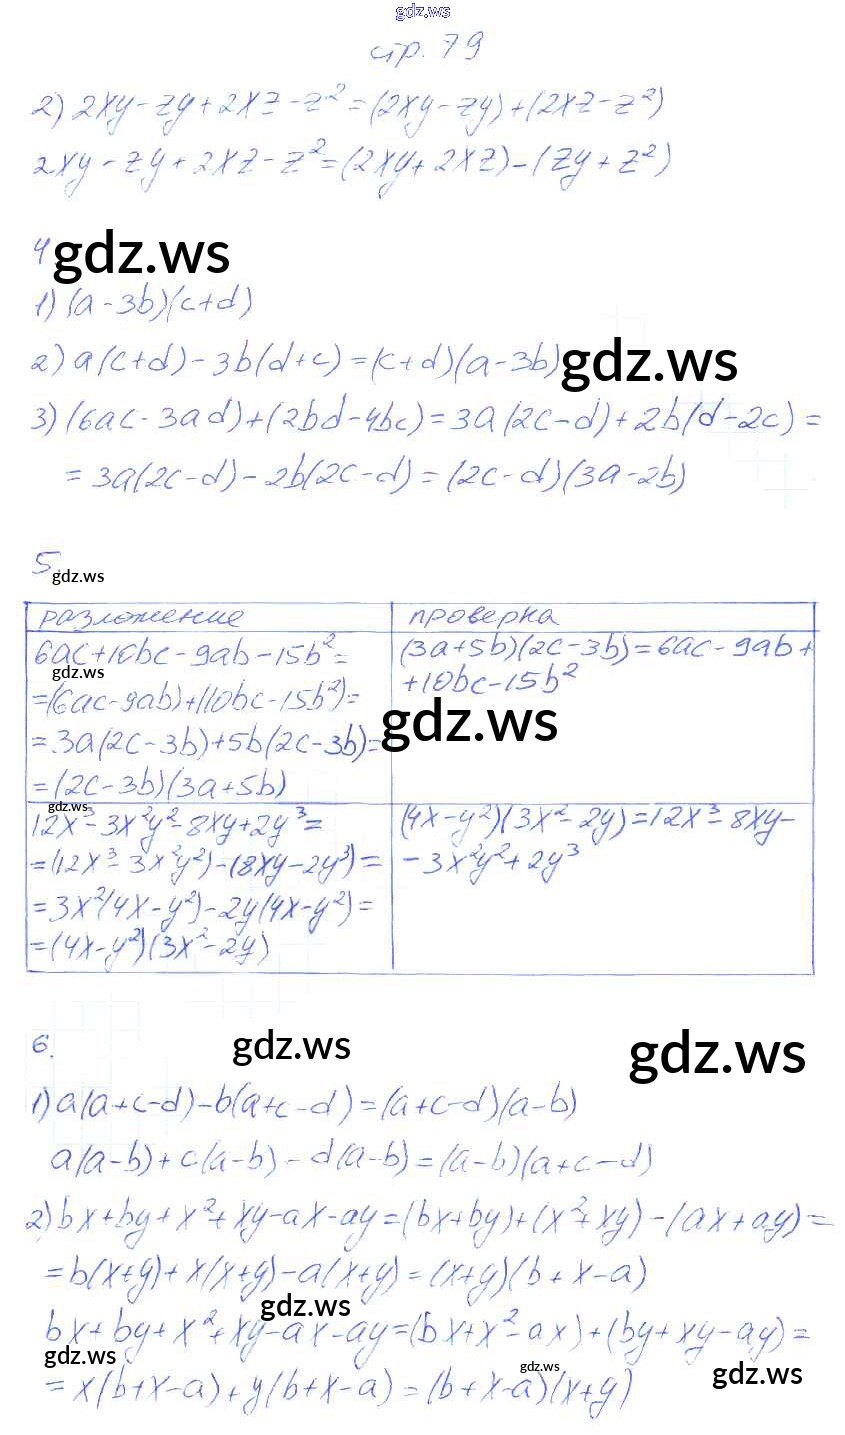 gdz.ws
стр. 79
2) 2xy - zy + 2xz - z² = (2xy - zy) + (2xz - z²)
2xy - zy + 2xz - z² = (2xy + 2xz) - (zy + z²)
4. gdz.ws
1) (a - 3b)(c + d)
2) a(c + d) - 3b(d + c) = (c + d)(a - 3b) gdz.ws
3) (6ac - 3ad) + (2bd - 4bc) = 3a(2c - d) + 2b(d - 2c) =
= 3a(2c - d) - 2b(2c - d) = (2c - d)(3a - 2b)
5. gdz.ws
разложение
проверка
6ac + 10bc - 9ab - 15b² =
gdz.ws
= (6ac - 9ab) + (10bc - 15b²) =
= 3a(2c - 3b) + 5b(2c - 3b) =
= (2c - 3b)(3a + 5b)
(3a + 5b)(2c - 3b) = 6ac - 9ab +
+ 10bc - 15b²
gdz.ws
gdz.ws
12x³ - 3x²y² - 8xy + 2y³ =
= (12x³ - 3x²y²) - (8xy - 2y³) =
= 3x²(4x - y²) - 2y(4x - y²) =
= (4x - y²)(3x² - 2y)
(4x - y²)(3x² - 2y) = 12x³ - 8xy -
- 3x²y² + 2y³
6. gdz.ws gdz.ws
1) a(a + c - d) - b(a + c - d) = (a + c - d)(a - b)
a(a - b) + c(a - b) - d(a - b) = (a - b)(a + c - d)
2) bx + by + x² + xy - ax - ay = (bx + by) + (x² + xy) - (ax + ay) =
= b(x + y) + x(x + y) - a(x + y) = (x + y)(b + x - a)
gdz.ws
bx + by + x² + xy - ax - ay = (bx + x² - ax) + (by + xy - ay) =
gdz.ws gdz.ws gdz.ws
= x(b + x - a) + y(b + x - a) = (b + x - a)(x + y)